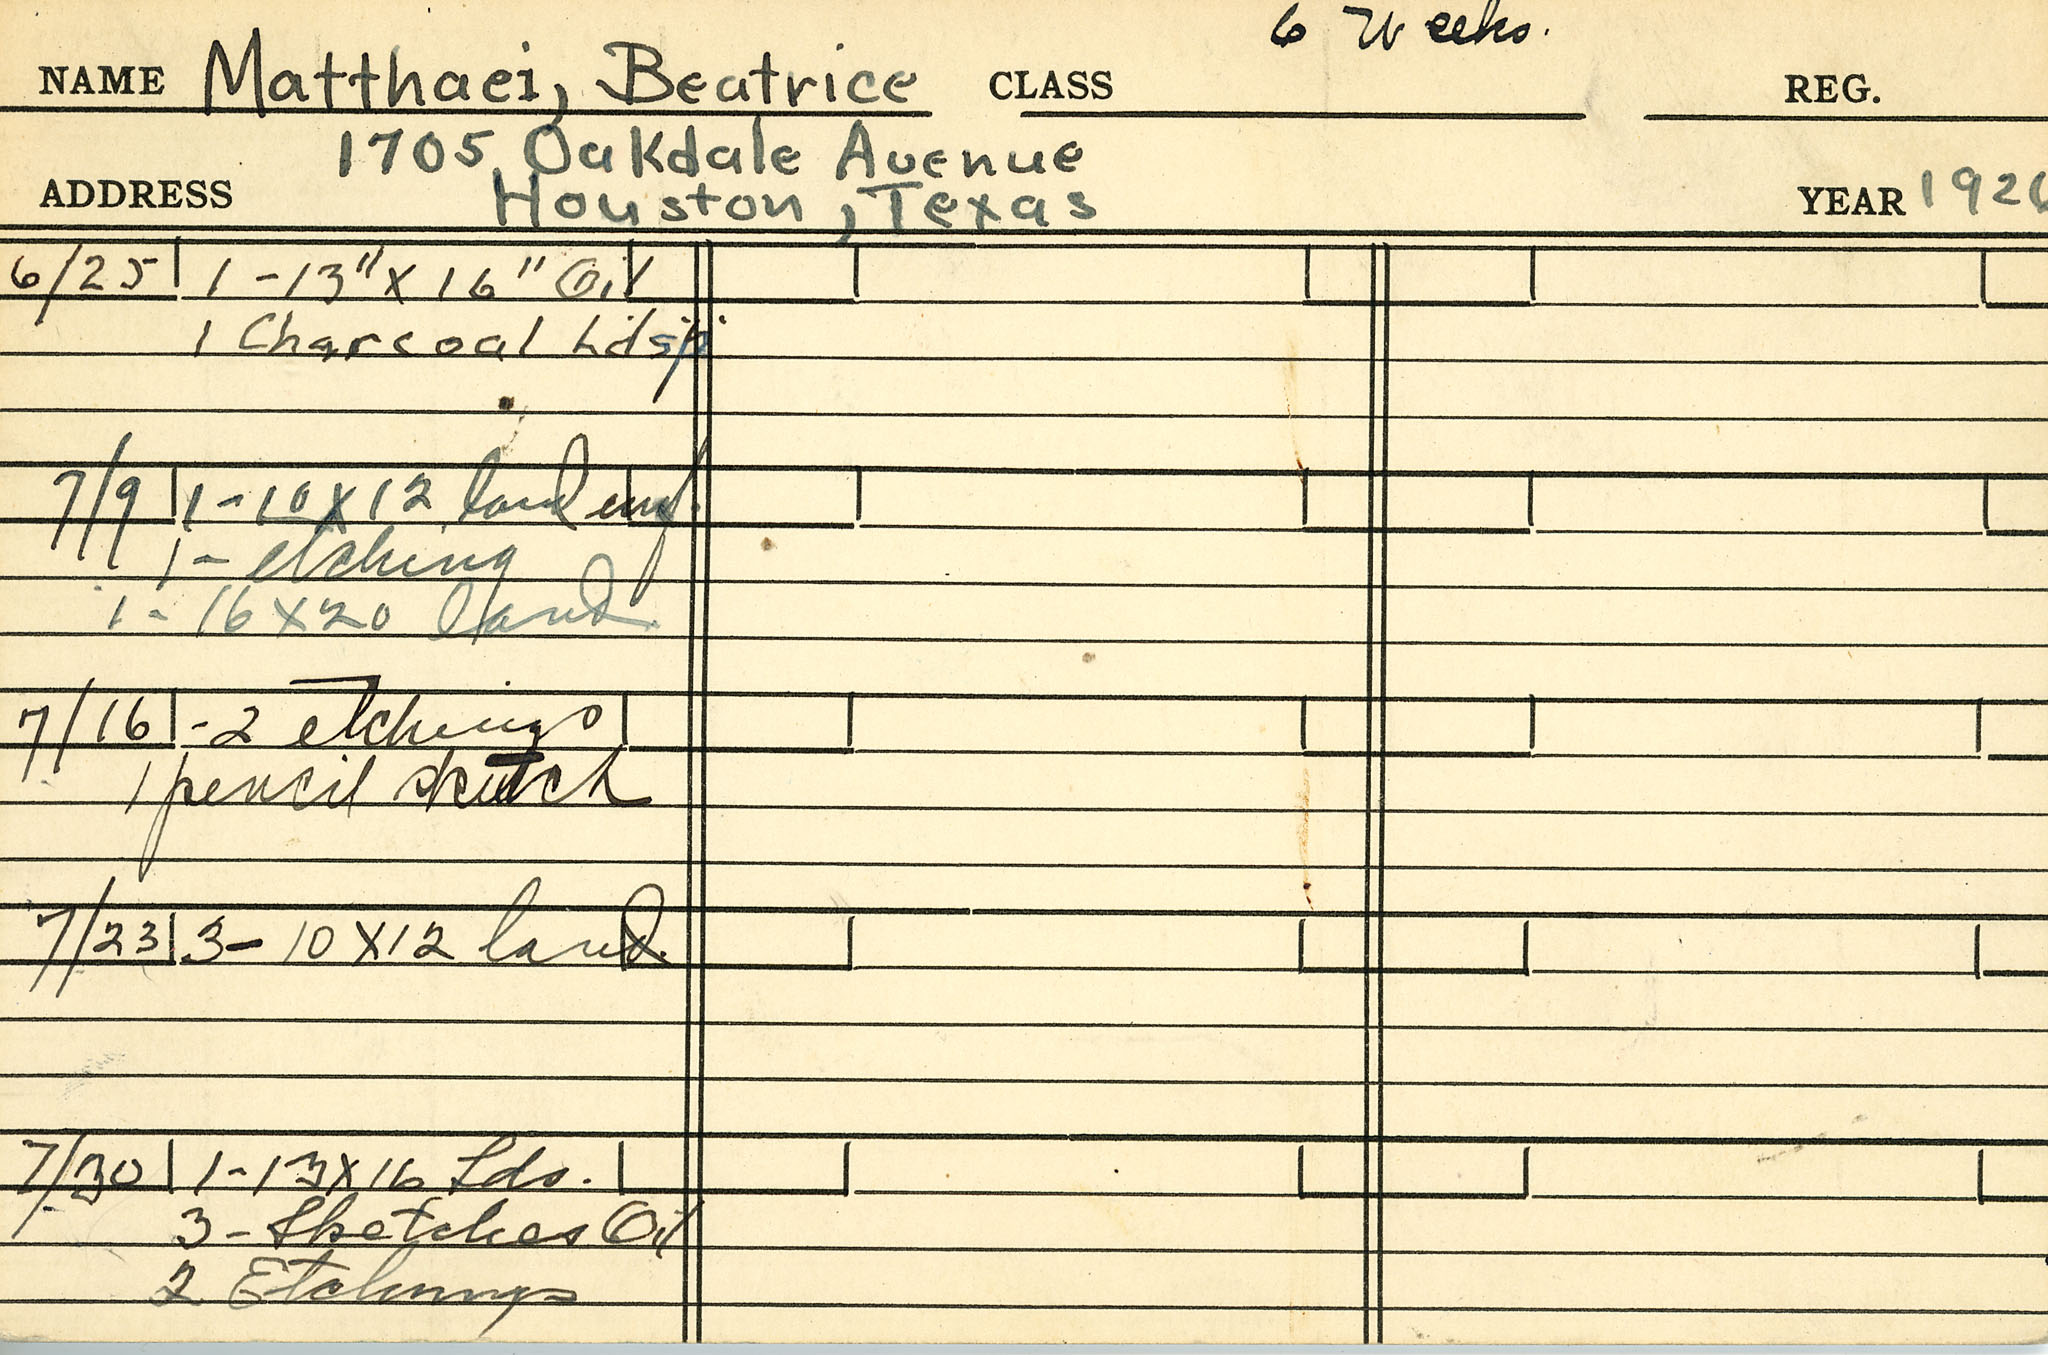 6 Weeks.
NAME Matthaei, Beatrice CLASS REG.
1705 Oakdale Avenue
ADDRESS Houston, Texas YEAR 192
6/25 1-13"x16" Oil
1 Charcoal Ldsp.
7/9 1-10x12 land
1- etching
1- 16x20 land.
7/16 -2 etchings
1 pencil sketch
7/23 3- 10x12 land.
7/30 1-13x16 Lds.
3- Sketches Oil
2 Etchings